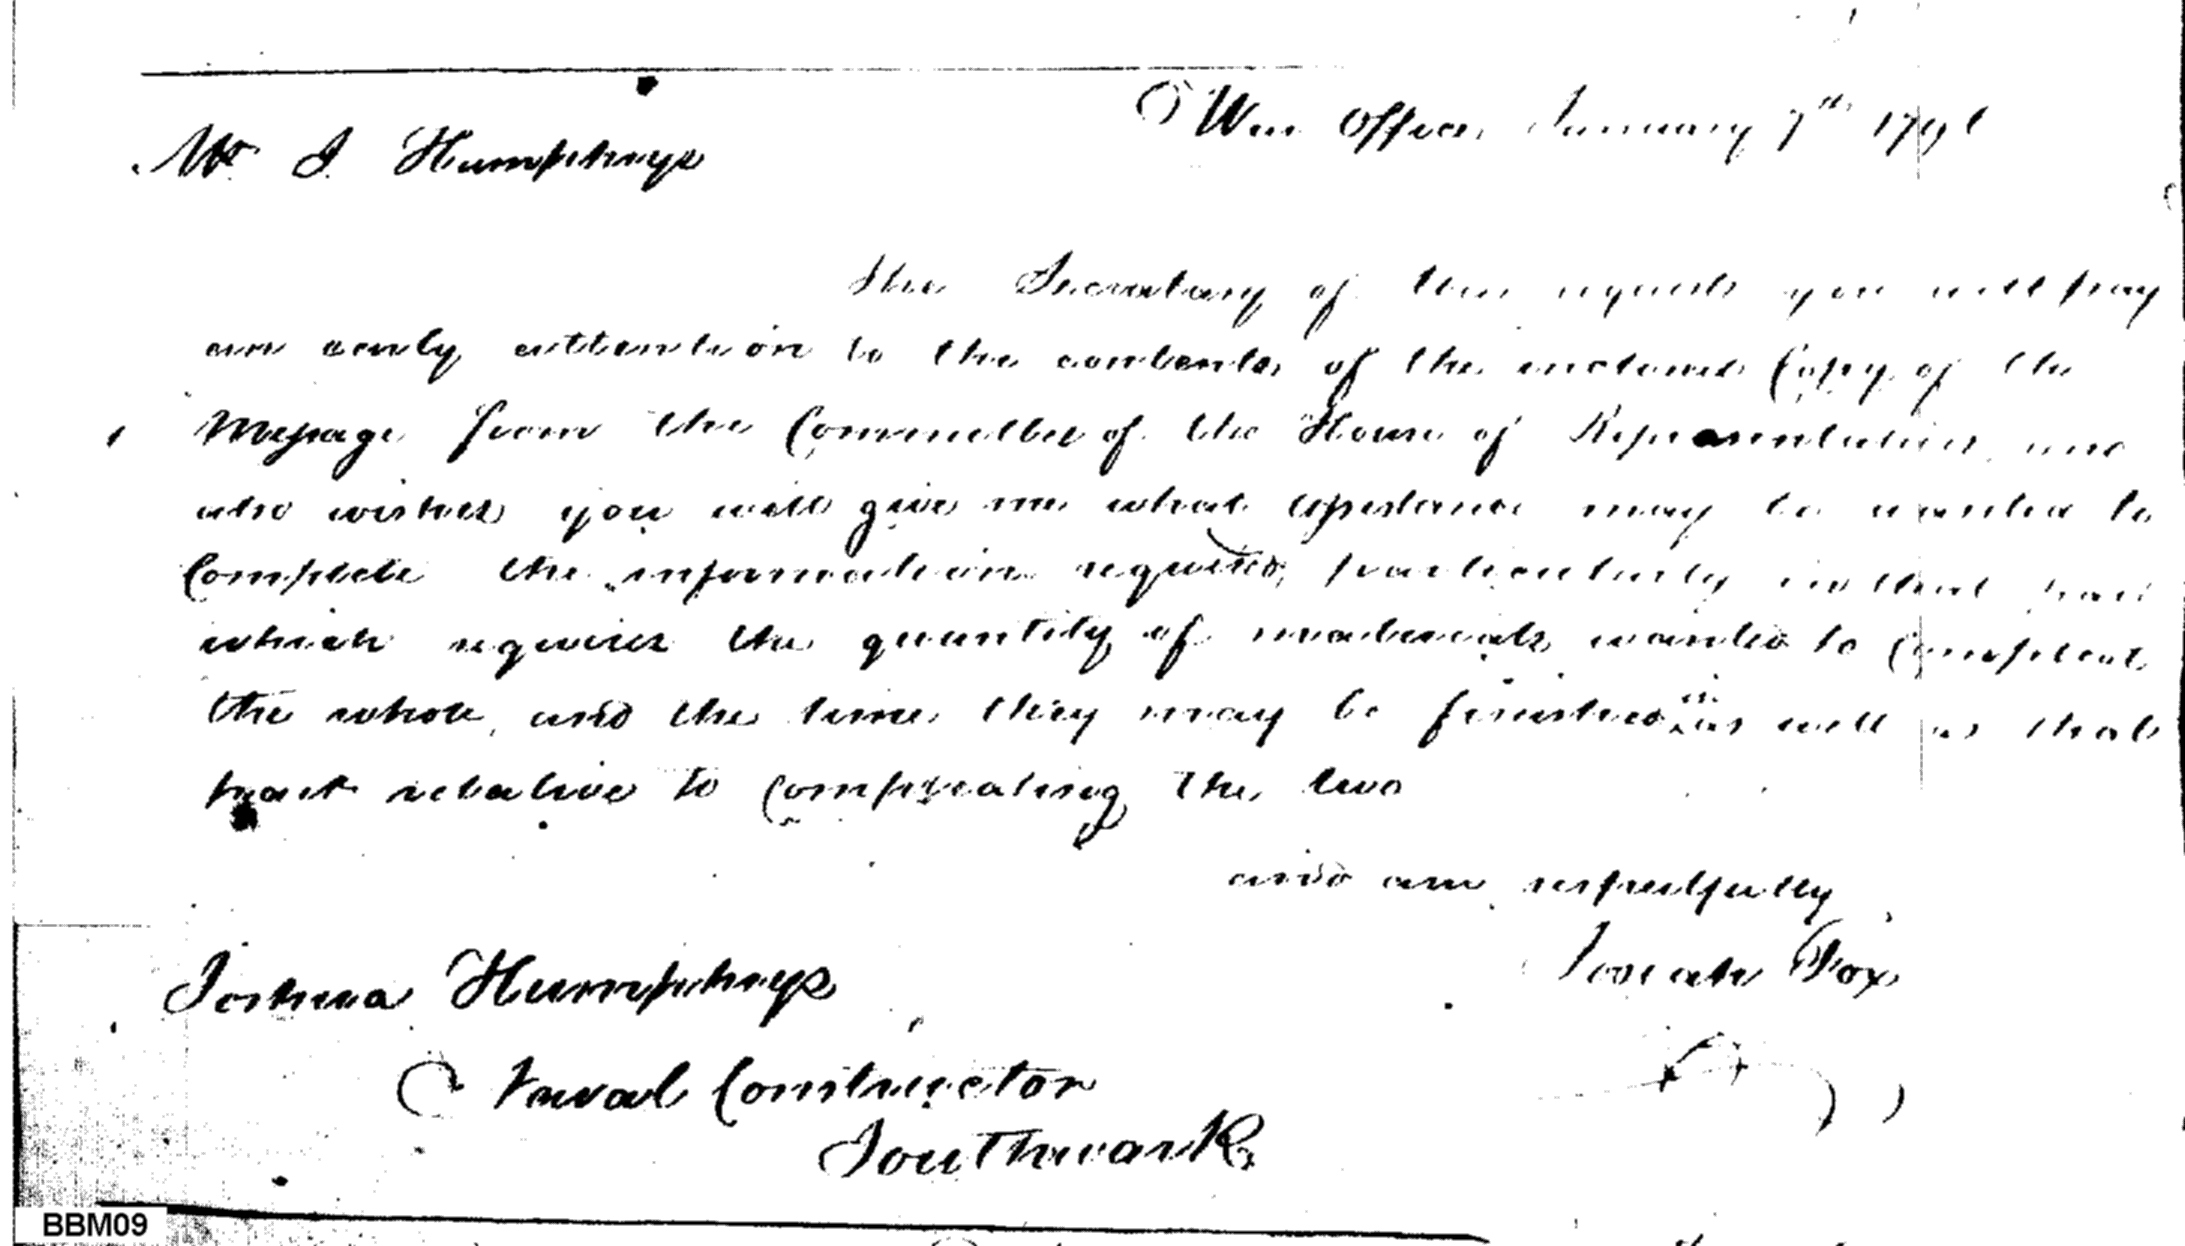 War Office January 7th 1796
Mr. J. Humphreys
The Secretary of War requests you will pay
an early attention to the contents of the inclosed Copy of the
Message from the Committee of the House of Representatives, and
also wishes you will give me what assistance may be wanted to
Complete the information required, particularly in that part
which requires the quantity of materials wanted to Compleat
the whole, and the time they may be finished in as well as that
part relative to Compleating the two
and am respectfully
Josiah Fox
Joshua Humphreys
Naval Constructor
Southwark
BBM09